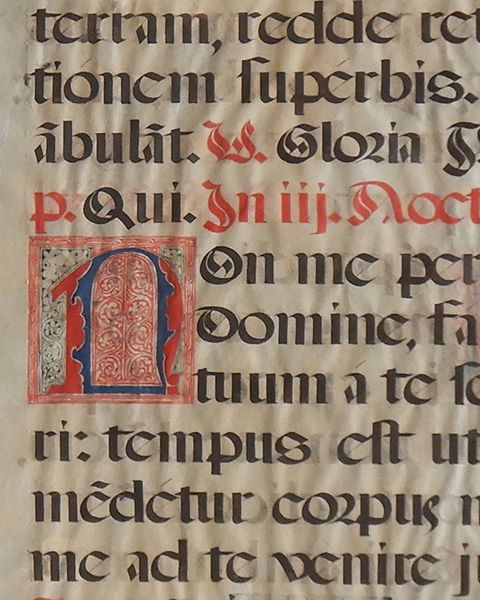 terram, redde ret
tionem superbis.
ābulāt. V. Gloria P
p. Qui. In iij. Noct
NOn me per
Domine, fa
tuum a te se
ri: tempus est ut
mēdetur corpus m
me ad te venire ju